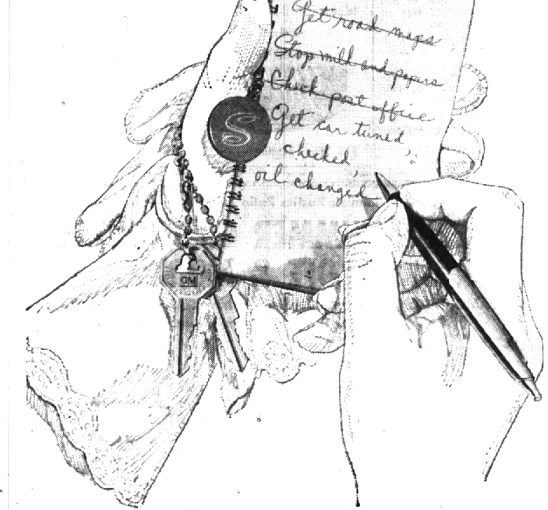 Get road maps
Stop milk and papers
Check post office
Get car tuned,
checked,
oil changed
S
GM